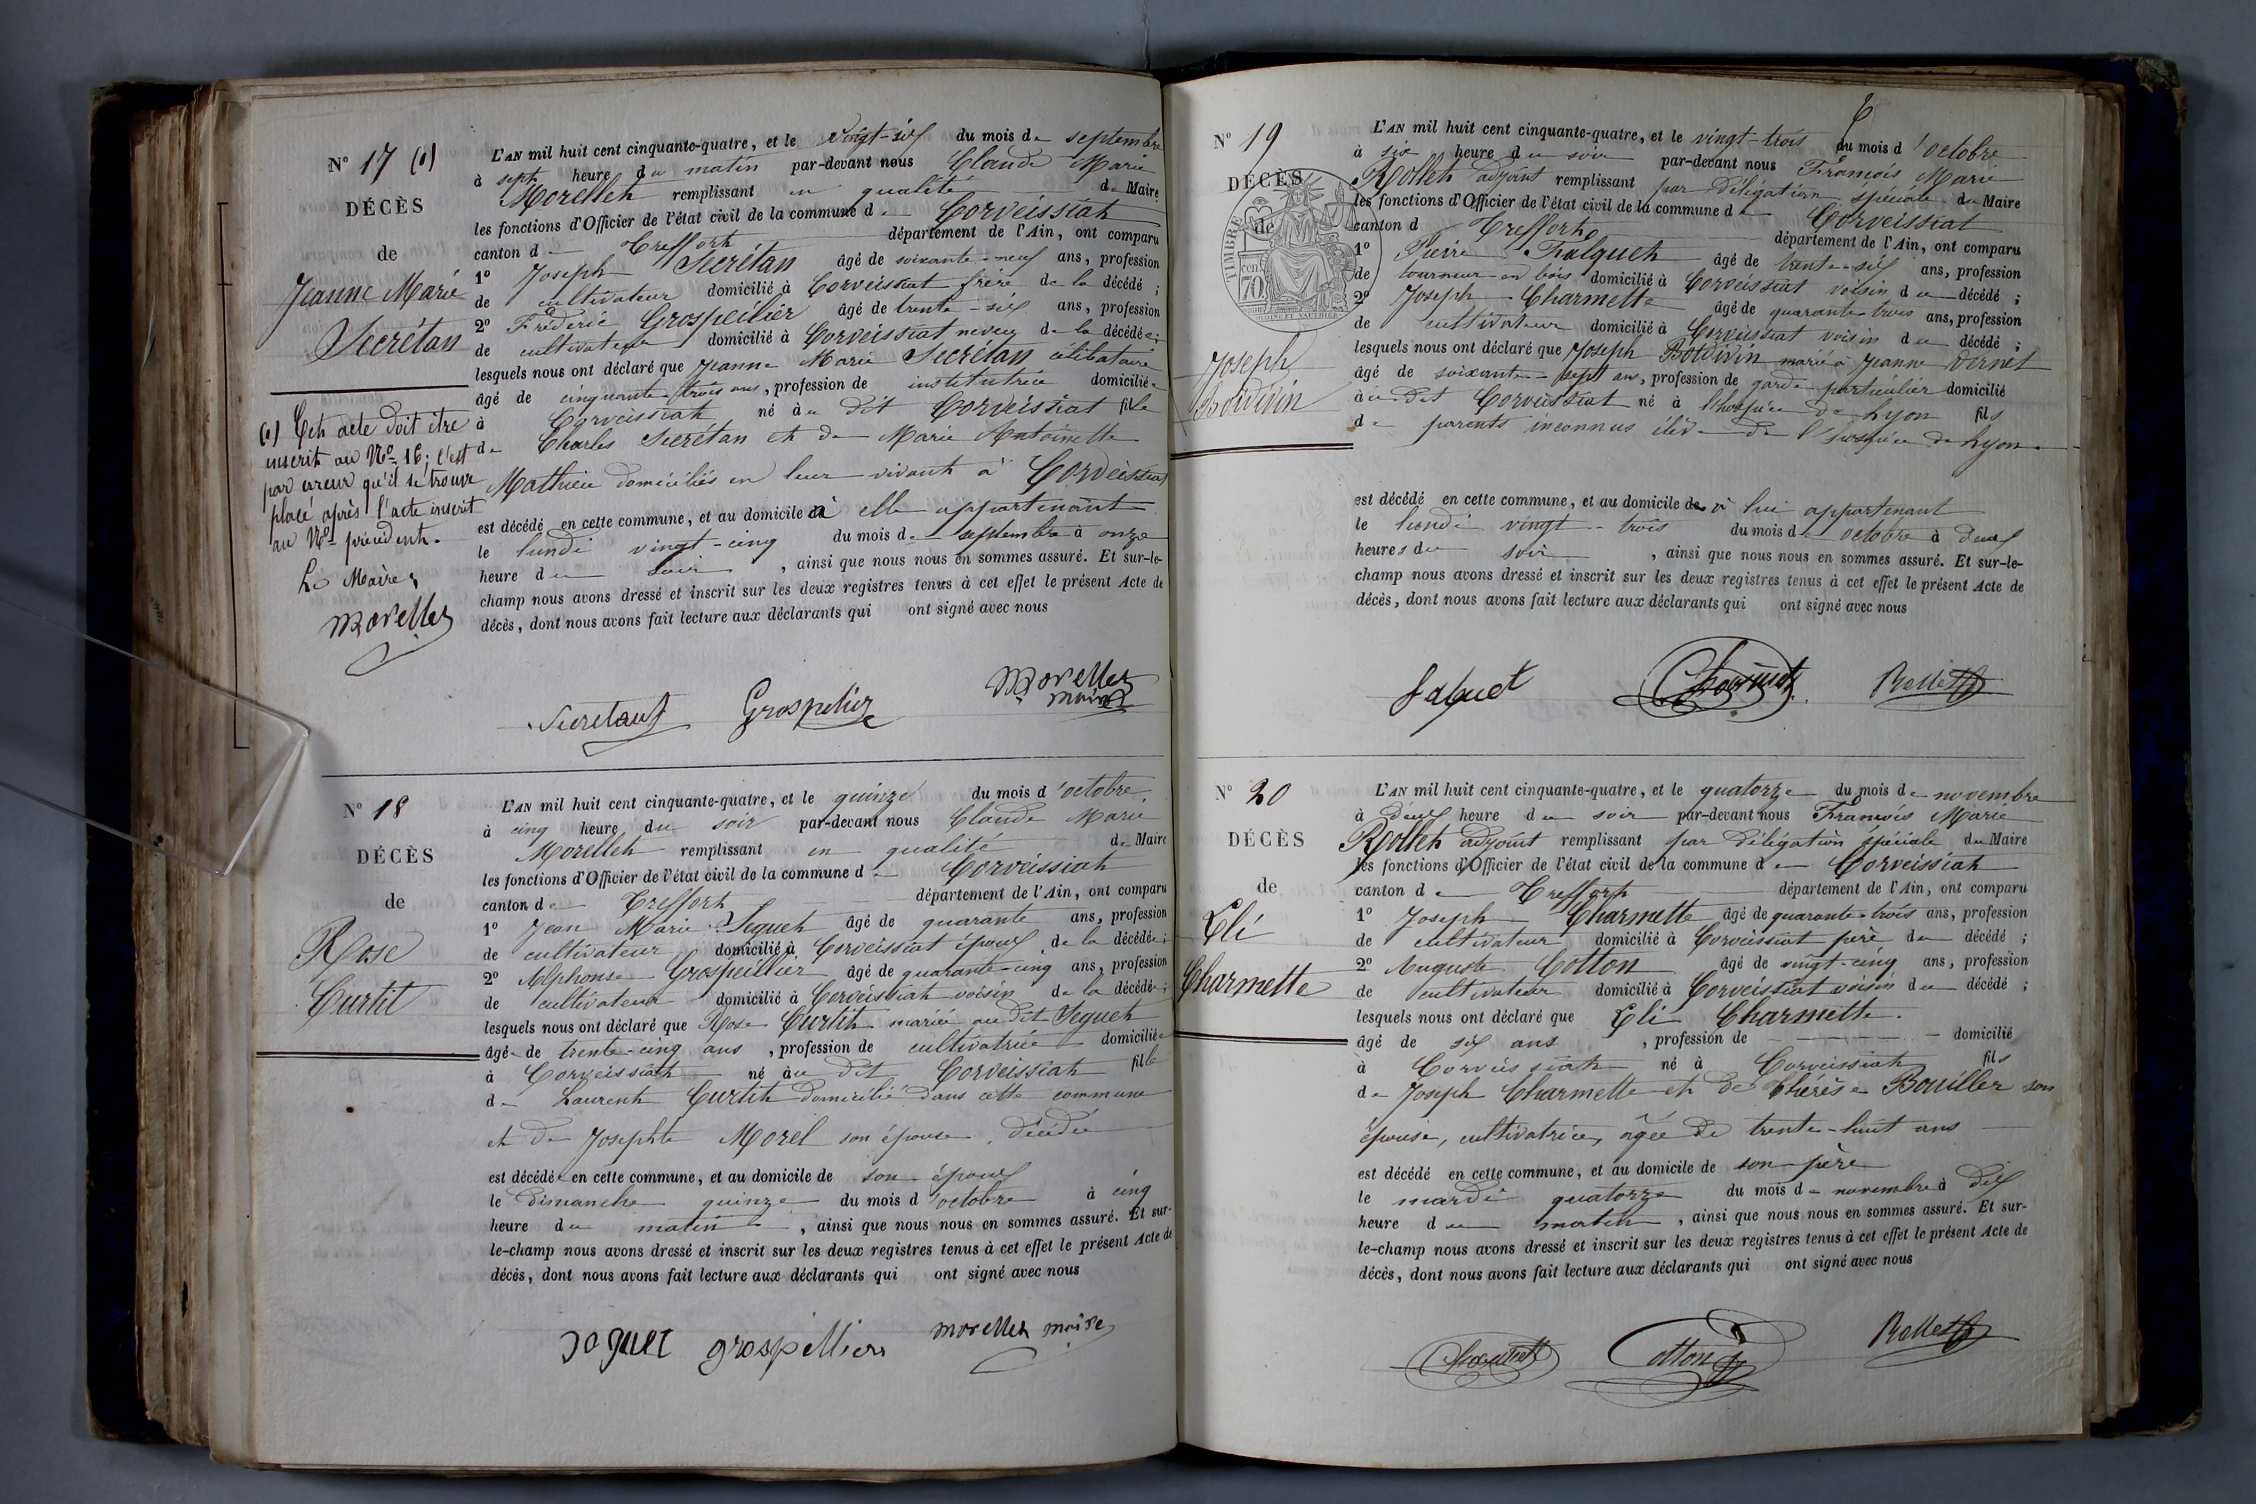 N° 17 (1)
DÉCÈS
de
Jeanne Marie
Secrétan
(1) Cet acte doit être
inscrit au N° 16; c'est
par erreur qu'il se trouve
placé après l'acte inscrit
au N° précédent.
Le Maire,
Morellet
L'AN mil huit cent cinquante-quatre, et le vingt-six du mois de septembre
à sept heure du matin par-devant nous Claude Marie
Morellet remplissant en qualité de Maire
les fonctions d'Officier de l'état civil de la commune de Corveissiat
canton de Treffort département de l'Ain, ont comparu
1° Joseph Secrétan âgé de soixante-neuf ans, profession
de cultivateur domicilié à Corveissiat frère de la décédé ;
2° Fréderic Grospeillier âgé de trente-six ans, profession
de cultivateur domicilié à Corveissiat neveu de la décédée ;
lesquels nous ont déclaré que Jeanne Marie Secrétan célibataire
âgé de cinquante-trois ans, profession de institutrice domiciliée
à Corveissiat né au dit Corveissiat fille
de Charles Secrétan et de Marie Antoinette
Mathieu domiciliés en leur vivant à Corveissiat
est décédé en cette commune, et au domicile à elle appartenant
le lundi vingt-cinq du mois de septembre à onze
heure du soir, ainsi que nous nous en sommes assuré. Et sur-le-
champ nous avons dressé et inscrit sur les deux registres tenus à cet effet le présent Acte de
décès, dont nous avons fait lecture aux déclarants qui ont signé avec nous
Secretant Grospelier Morellet
maire
N° 18
DÉCÈS
de
Rose
Curtit
L'AN mil huit cent cinquante-quatre, et le quinze du mois d'octobre
à cinq heure du soir par-devant nous Claude Marie
Morellet remplissant en qualité de Maire
les fonctions d'Officier de l'état civil de la commune de Corveissiat
canton de Treffort département de l'Ain, ont comparu
1° Jean Marie Jeguet âgé de quarante ans, profession
de cultivateur domicilié à Corveissiat époux de la décédée ;
2° Alphonse Grospeillier âgé de quarante-cinq ans, profession
de cultivateur domicilié à Corveissiat voisin de la décédée ;
lesquels nous ont déclaré que Rose Curtit mariée au dit Jeguet
âgée de trente-cinq ans, profession de cultivatrice domiciliée
à Corveissiat né au dit Corveissiat fille
de Laurent Curtit domicilié dans cette commune
et de Josephte Morel son épouse, décédée
est décédée en cette commune, et au domicile de son époux
le Dimanche quinze du mois d'octobre à cinq
heure du matin, ainsi que nous nous en sommes assuré. Et sur-
le-champ nous avons dressé et inscrit sur les deux registres tenus à cet effet le présent Acte de
décès, dont nous avons fait lecture aux déclarants qui ont signé avec nous
grospellier morellet maire
N° 19
DÉCÈS
de
TIMBRE
70
Joseph
Boidivin
L'AN mil huit cent cinquante-quatre, et le vingt-trois du mois d'octobre
à six heure du soir par-devant nous François Marie
Rollet adjoint remplissant par délégation spéciale du Maire
les fonctions d'Officier de l'état civil de la commune de Corveissiat
canton d Treffort département de l'Ain, ont comparu
1° Pierre Falquet âgé de trente-six ans, profession
de tourneur en bois domicilié à Corveissiat voisin du décédé ;
2° Joseph Charmette âgé de quarante-trois ans, profession
de cultivateur domicilié à Corveissiat voisin du décédé ;
lesquels nous ont déclaré que Joseph Boidivin marié à Jeanne Vernet
âgé de soixante-sept ans, profession de garde particulier domicilié
à au dit Corveissiat né à l'hospice de Lyon fils
de parents inconnus élève de l'hospice de Lyon
est décédé en cette commune, et au domicile de à lui appartenant
le lundi vingt-trois du mois de octobre à deux
heures du soir, ainsi que nous nous en sommes assuré. Et sur-le-
champ nous avons dressé et inscrit sur les deux registres tenus à cet effet le présent Acte de
décès, dont nous avons fait lecture aux déclarants qui ont signé avec nous
falquet Charmette Rollet
N° 20
DÉCÈS
de
Eli
Charmette
L'AN mil huit cent cinquante-quatre, et le quatorze du mois de novembre
à deux heure du soir par-devant nous François Marie
Rollet adjoint remplissant par délégation spéciale du Maire
les fonctions d'Officier de l'état civil de la commune de Corveissiat
canton de Treffort département de l'Ain, ont comparu
1° Joseph Charmette âgé de quarante-trois ans, profession
de cultivateur domicilié à Corveissiat père du décédé ;
2° Auguste Cotton âgé de vingt-cinq ans, profession
de cultivateur domicilié à Corveissiat voisin du décédé ;
lesquels nous ont déclaré que Eli Charmette
âgé de six ans, profession de domicilié
à Corveissiat né à Corveissiat fils
de Joseph Charmette et de Thérèse Bouiller son
épouse, cultivatrice, âgée de trente-huit ans
est décédé en cette commune, et au domicile de son père
le mardi quatorze du mois de novembre à dix
heure du matin, ainsi que nous nous en sommes assuré. Et sur-
le-champ nous avons dressé et inscrit sur les deux registres tenus à cet effet le présent Acte de
décès, dont nous avons fait lecture aux déclarants qui ont signé avec nous
Charmette Cotton Rollet